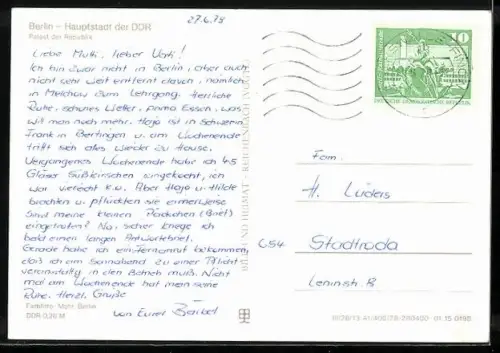 Berlin – Hauptstadt der DDR
Palast der Republik
27.6.78
Liebe Mutti, lieber Vati!
Ich bin zwar nicht in Berlin, aber auch
nicht sehr weit entfernt davon, nämlich
in Melchow zum Lehrgang. Herrliche
Ruhe, schönes Wetter, prima Essen, was
will man noch mehr. Hajo ist in Schwerin
Frank in Bertingen u. am Wochenende
trifft sich alles wieder zu Hause.
Vergangenes Wochenende habe ich 45
Gläser Süßkirschen eingekocht, ich
war vielleicht k.o. Aber Hajo u. Hilde
brachten u. pflückten sie eimerweise
Sind meine kleinen Päckchen (Brief)
eingetroffen? Na, sicher kriege ich
bald einen langen Antwortbrief.
Gerade habe ich ein Fernanruf bekommen,
daß ich am Sonnabend zu einer Pflicht
veranstaltg. in den Betrieb muß. Nicht
mal am Wochenende hat man seine
Ruhe. Herzl. Grüße
von Eurer Bärbel
BILD UND HEIMAT REICHENBACH
10
DEUTSCHE DEMOKRATISCHE REPUBLIK
Fam.
H. Lüders
654 Stadtroda
Leninstr. 8
Berlin
DDR 0,20 M